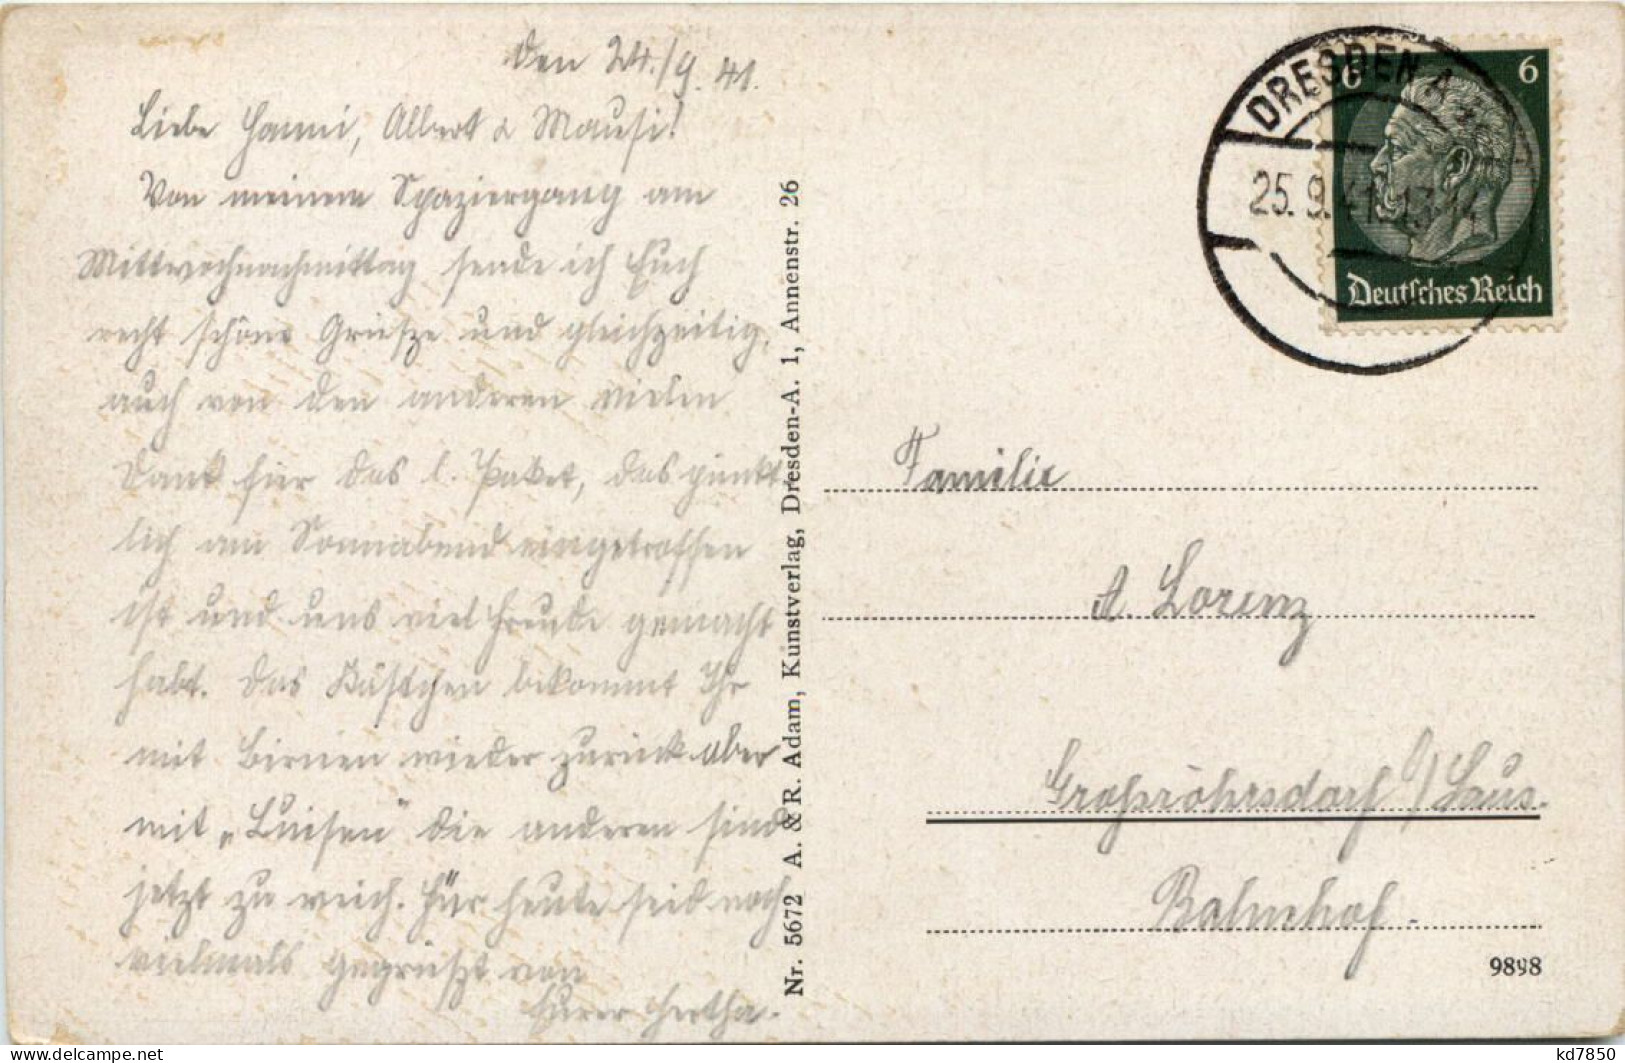 den 24./9.41.
Liebe Hanni, Albert & Mausi!
Von meinem Spaziergang am
Mittwochnachmittag sende ich Euch
recht schöne Grüsze und gleichzeitig,
auch von den anderen vielen
Dank für das l. Paket, das pünkt-
lich am Sonnabend eingetroffen
ist und uns viel Freude gemacht
habt. Das Kästchen bekommt Ihr
mit Birnen wieder zurück aber
mit „Luisen" die anderen sind
jetzt zu weich. Für heute seid noch
vielmals gegrüszt von
Eurer Hertha.
Nr. 5672 A. & R. Adam, Kunstverlag, Dresden-A. 1, Annenstr. 26
DRESDEN A
25.9.41. 13-14
6 6
Deutsches Reich
Familie
A. Lorenz
Großröhrsdorf O/Laus.
Bahnhof.
9898
kd7850